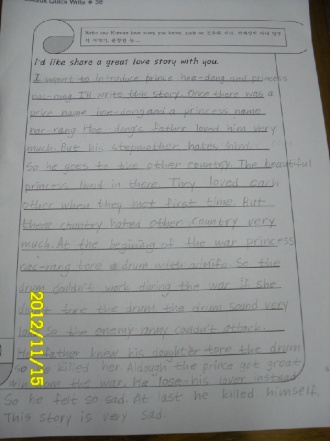 Quick Write # 38
Write any Korean love story you know
I'd like share a great love story with you.
I want to introduce prince hoe-dong and princess
rang. I'll write this story. Once there was a
name hoe-dong and a princess name
rang Hoe dong's father loved him very
much. But his stepmother hates him.
So he goes to the other country. The beautiful
princess lived in there. They loved each
other when they met first time. But
these country hated other country very
much. At the beginning of the war princess
rang tore a drum with a knife. So the
drum couldn't work during the war. If she
didn't tore the drum the drum sound very
So the enemy army couldn't attack.
father knew his daughter tore the drum
so killed her. Aldough the prince got great
from the war. He lose his lover instead
So he felt so sad. At last he killed himself.
This story is very sad.
2012/11/15